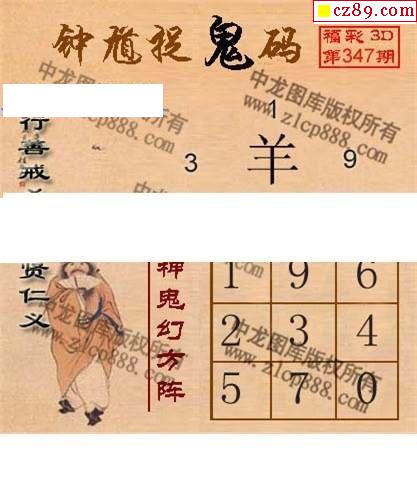 cz89.com
钟馗捉鬼码
福彩 3D
第347期
中龙图库版权所有
www.zlcp888.com
1
3 羊 9
行善戒
贤仁义
神鬼幻方阵
1 9 6
2 3 4
5 7 0
中龙图库版权所有
www.zlcp888.com